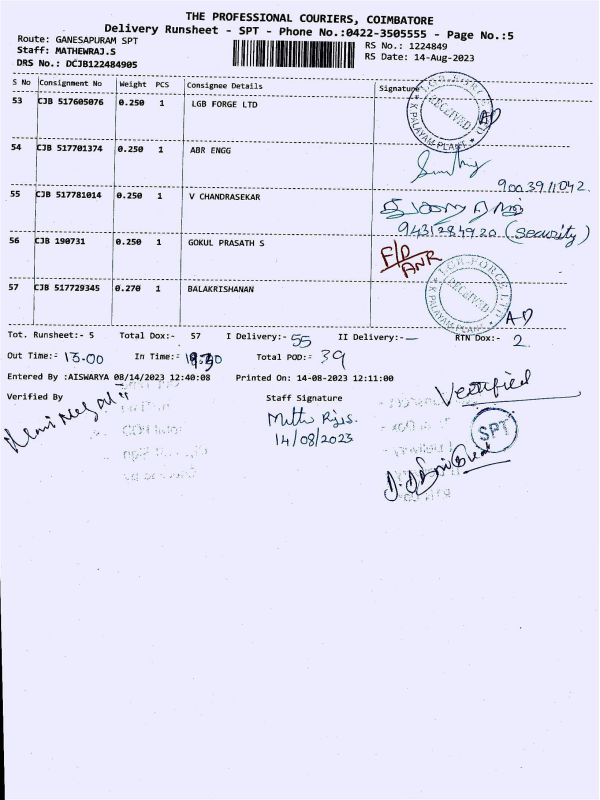 THE PROFESSIONAL COURIERS, COIMBATORE
Delivery Runsheet - SPT - Phone No.:0422-3505555 - Page No.:5
Route: GANESAPURAM SPT
RS No.: 1224849
Staff: MATHEWRAJ.S
RS Date: 14-Aug-2023
DRS No.: DCJB122484905
S No Consignment No Weight PCS Consignee Details Signature
53 CJB 517605076 0.250 1 LGB FORGE LTD
RECEIVED
K PALAYAM PLANT
AD
54 CJB 517701374 0.250 1 ABR ENGG
9003911042.
55 CJB 517781014 0.250 1 V CHANDRASEKAR
9431284920 (security)
56 CJB 190731 0.250 1 GOKUL PRASATH S
F/D
ANR
57 CJB 517729345 0.270 1 BALAKRISHANAN
RECEIVED
K PALAYAM PLANT
AD
Tot. Runsheet:- 5 Total Dox:- 57 I Delivery:- 55 II Delivery:- — RTN Dox:- 2
Out Time:- 13-00 In Time:- Total POD:- 39
Entered By :AISWARYA 08/14/2023 12:40:08 Printed On: 14-08-2023 12:11:00
Verified By Staff Signature Verified
14/08/2023
SPT